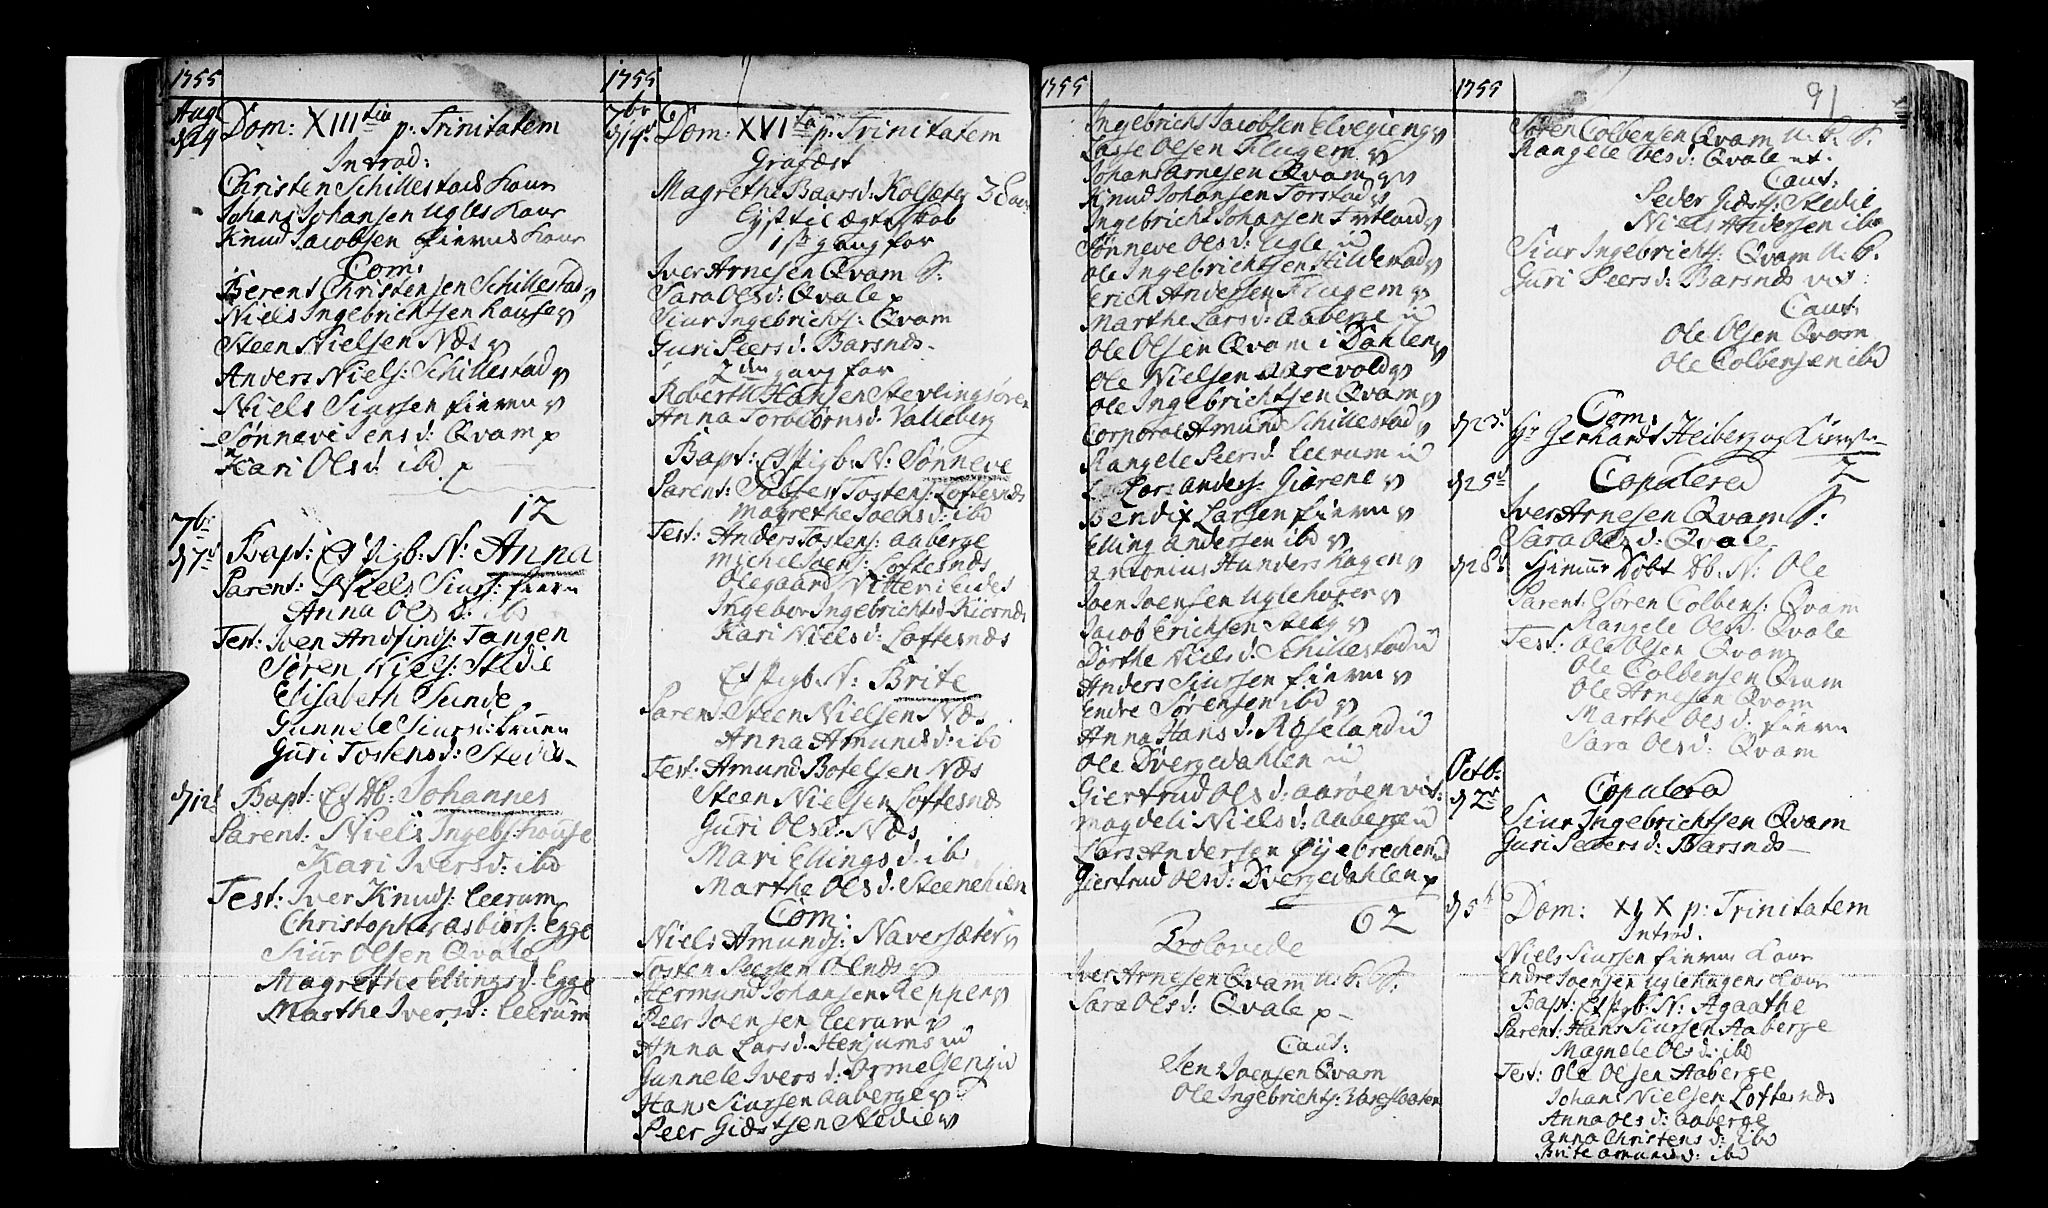 1755
Aug:
d 24 Dom: XIII tia p: Trinitatem
Introd:
Christen Schillestads Kone
Johans Johansen Ugles Kone
Knud Jacobsen fierens Kone
Com:
Berent Christensen Schillestad
Niels Ingebrichtsen house
Steen Nielsen Næs
Anders Niels: Schillestad
Niels Siursen fieren
Sønnevi Jens d: Qvam p
Kari Ols d: ibd p
12
7br
d 7d Bapt: Et Pigb: N: Anna
Parent: Niels Siurs: fiern
Anna Ols d: ibd
Test: Iver Andfinds: Tangen
Søren Niels: Stedie
Elisabeth Sunde
Gunnele Siurs d:
Guri Tostens d: Stedie
d 12t Bapt: Et Db: Johannes
Parent: Niels Ingebs: house
Kari Ivers d: ibd
Test: Iver Knuds: Leerum
Christopher Asbiørs: Egge
Siur Olsen Qvale
Magrethe Ellings d: Egge
Marthe Ivers d: Leerum
1755
7br
d 14d Dom: XVI ta p: Trinitatem
Grafæst
Magrethe Baars d: Kolsæter 3
til Ægteskab
1ste gang for
Iver Arnesen Qvam S:
Sara Ols d: Qvale p
Siur Ingebrichts: Qvam
Guri Peers d: Barsnæs
2den gang for
Roberth Hansen Stevlingsøren
Anna Torbiørns d: Valleberg
Bapt: Et Pigb: N: Sønneve
Parent: Tosten: Loftesnæs
Magrethe Joens d: ibd
Test: Anders Tostens: Aaberge
Michel Joens: Loftesnæs
Olegaard Vitter i Eidet
Ingebor Ingebrichts d: Kiørnæs
Kari Niels d: Loftesnæs
Et Pigb N: Brite
Parent: Steen Nielsen Næs
Anna Amunds d: ibd
Test: Amund Botelsen Næs
Steen Nielsen Loftesnæs
Guri Ols d: Næs
Mari Ellings d: ibd
Marthe Ols d: Steenehien
Com:
Niels Amunds: Naversæter
Tosten Peersen Olnæs
Hermund Johansen Reppen
Peer Joensen Leerum
Anna Lars d: Henjums
Gunnele Ivers d: Ormelseng
Hans Siursen Aaberge
Peer Giæstsen Stedie
1755
Ingebricht Jacobsen Elvegieng
Lasse Olsen Flugem
Johan Arnesen Qvam
Knud Johansen Torstad
Ingebricht Johansen
Sønneve Ols d: Ugle
Ole Ingebrichtsen Hildestad
Erich Andersen Flugem
Marthe Lars d: Aaberge
Ole Olsen Qvam i Dahlen
Ole Nielsen
Ole Ingebrichtsen Qvam
Corporal Amund Schillestad
Rangele Peers d: Leerum
Lars Anders: Giørene
Bendix Larsen fieren
Elling Andersen ibd
Antonius Hundershagen
Joen Joensen Uglehagen
Jacob Erichsen Steig
Dorthe Niels d: Schillestad
Anders Siursen fieren
Endre Sørensen ibd
Anna Hans d: Roseland
Ole Dvergedahlen
Giertrud Ols d: Aarøen vit:
Magdeli Niels d: Aaberge
Lars Andersen Øijebrechen
Giertrud Ols d: Dvergedahlen p
62
Trolovede
Iver Arnesen Qvam u: k: S:
Sara Ols d: Qvale p
Caut:
Jens Joensen Qvam
Ole Ingebrichts:
1755
91
Søren Colbensen Qvam u: k: S.
Rangele Ols d: Qvale ut.
Caut:
Peder Giæsts: Stedie
Niels Andersen ibd
Siur Ingebrichts: Qvam u: k.
Guri Peers d: Barsnæs vit:
Caut:
Ole Olsen Qvam
Ole Colbensen ibd
Com:
d 23d Hr Gerhardt Heiberg og
2
d 25d Copulered
Iver Arnesen Qvam S:
Sara Ols d: Qvale
d 28d Hjemme Døbt Db: N: Ole
Parent: Søren Colbens: Qvam
Rangele Ols d: Qvale
Test: Ole Olsen Qvam
Ole Colbensen Qvam
Ole Arnesen Qvam
Marthe Ols d: fieren
Sara Ols d: Qvam
Octb:
d 2d Copulered
Siur Ingebrichtsen Qvam
Guri Peders d: Barsnæs
d 5t Dom: XIX p: Trinitatem
Introd.
Niels Siursen fierens Kone
Endre Joensen Uglehagens Kone
Bapt: Et Pigb: N: Agaathe
Parent: Hans Siursen Aaberge
Magnele Ols d: ibd
Test: Ole Olsen Aaberge
Johans Nielsen Loftesnæs
Anna Ols d: Aaberge
Anna Christens d: ibd
Brite Amunds d: ibd